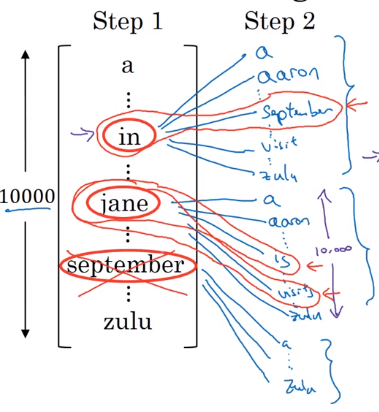 Step 1
Step 2
a
in
jane
september
zulu
10000
a
aaron
September
visit
zulu
a
aaron
is
visits
zulu
10,000
a
zulu